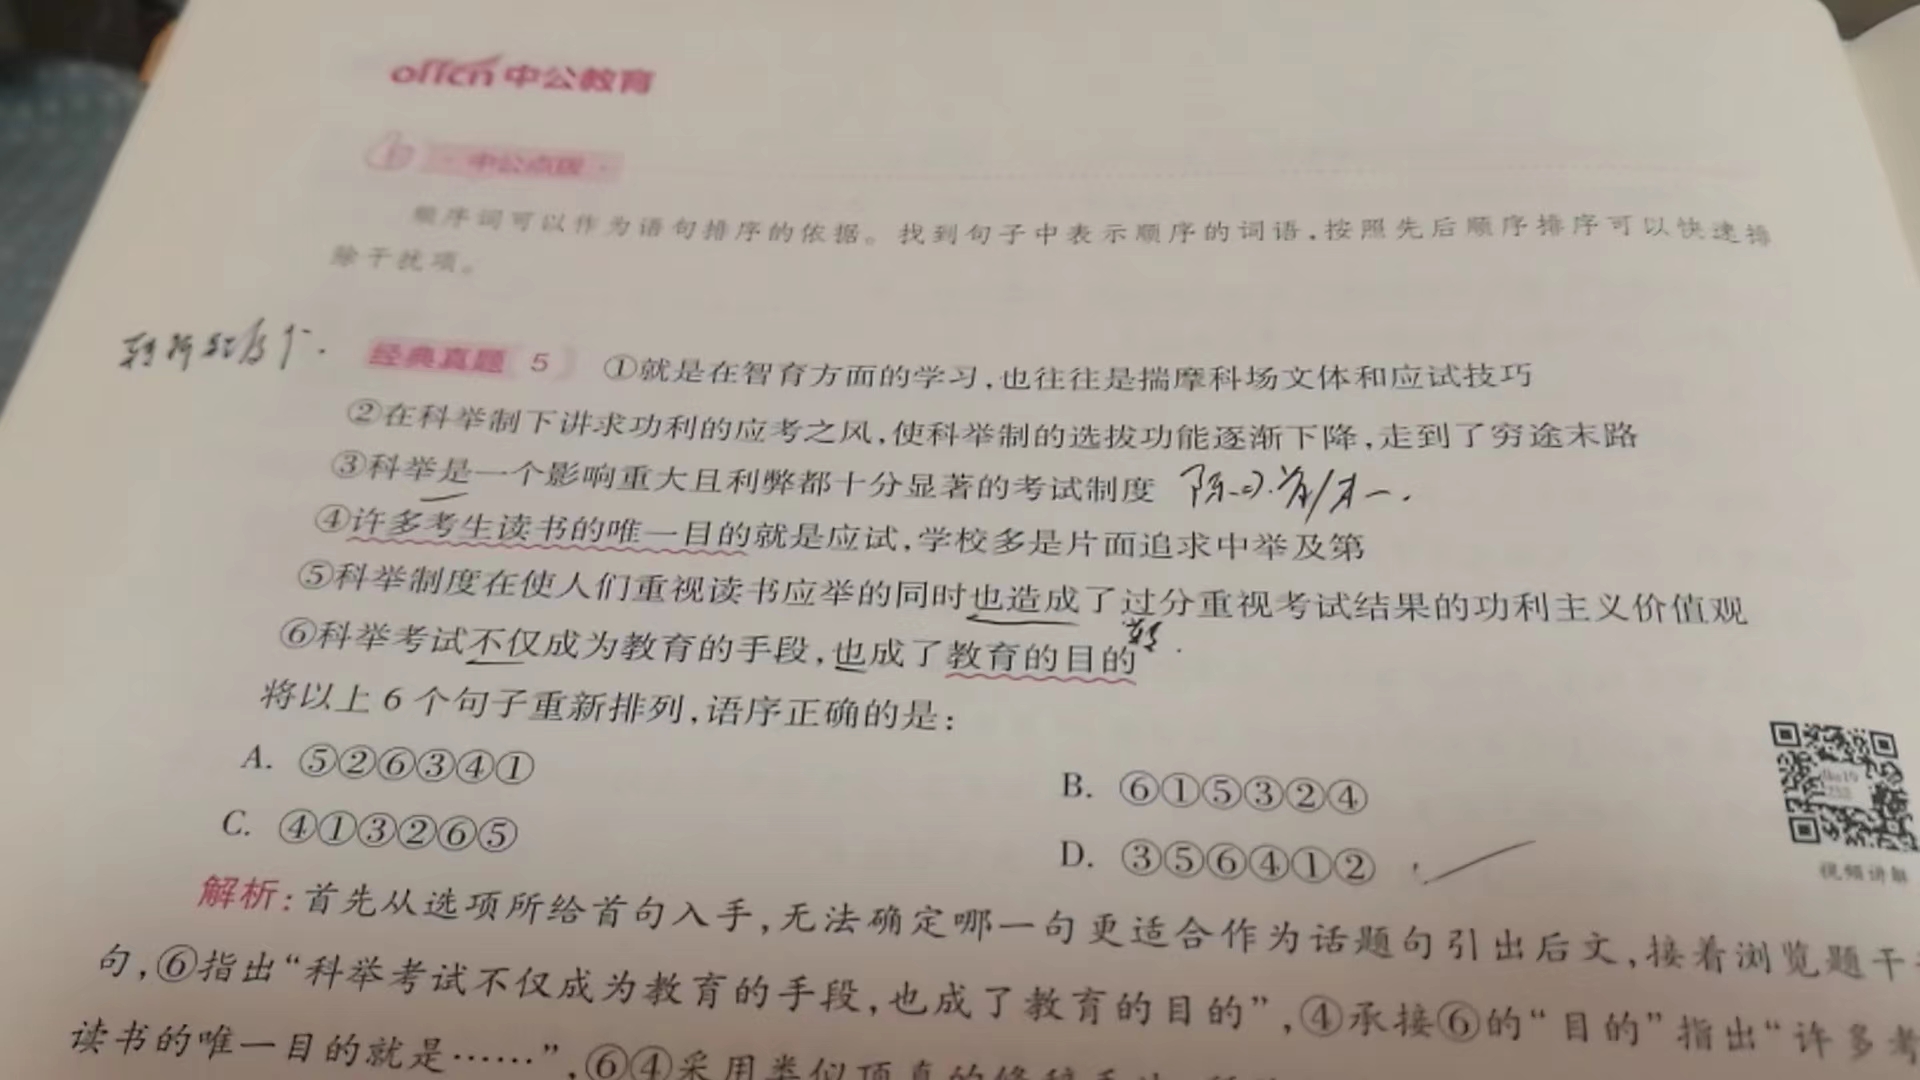 offcn中公教育
中公点拨
顺序词可以作为语句排序的依据。找到句子中表示顺序的词语,按照先后顺序排序可以快速排
除干扰项。
经典真题 5 ①就是在智育方面的学习,也往往是揣摩科场文体和应试技巧
②在科举制下讲求功利的应考之风,使科举制的选拔功能逐渐下降,走到了穷途末路
③科举是一个影响重大且利弊都十分显著的考试制度
④许多考生读书的唯一目的就是应试,学校多是片面追求中举及第
⑤科举制度在使人们重视读书应举的同时也造成了过分重视考试结果的功利主义价值观
⑥科举考试不仅成为教育的手段,也成了教育的目的
将以上6个句子重新排列,语序正确的是:
A. ⑤②⑥③④① B. ⑥①⑤③②④
C. ④①③②⑥⑤ D. ③⑤⑥④①②
视频讲解
解析:首先从选项所给首句入手,无法确定哪一句更适合作为话题句引出后文,接着浏览题干
句,⑥指出“科举考试不仅成为教育的手段,也成了教育的目的”,④承接⑥的“目的”指出“许多考
读书的唯一目的就是……”,⑥④采用类似顶真的修辞手法